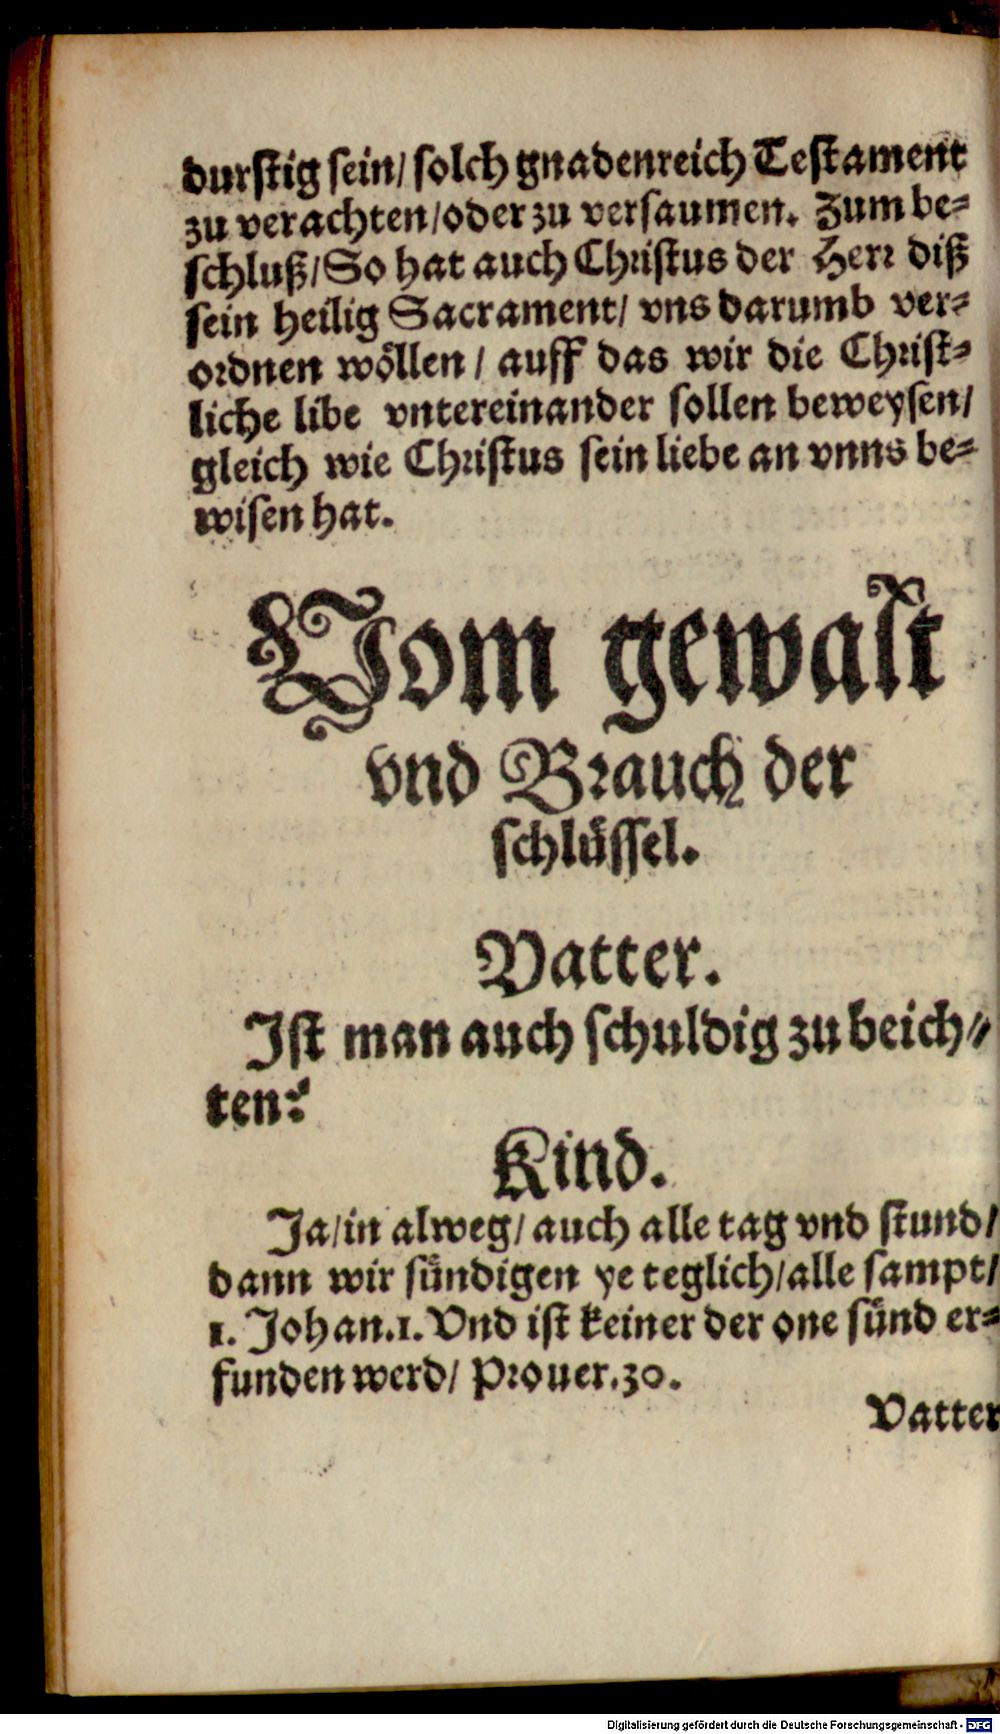 durſtig ſein/ ſolch gnadenreich Teſtament
zu verachten/ oder zu verſaumen. Zum be⸗
ſchluß/ So hat auch Chriſtus der Herr diß
ſein heilig Sacrament/ vns darumb ver⸗
ordnen wöllen/ auff das wir die Chriſt⸗
liche libe vntereinander ſollen beweyſen/
gleich wie Chriſtus ſein liebe an vnns be⸗
wiſen hat.
Vom gewalt
vnd Brauch der
ſchlüſſel.
Vatter.
Iſt man auch ſchuldig zu beich⸗
ten?
Kind.
Ja/ in alweg/ auch alle tag vnd ſtund/
dann wir ſündigen ye teglich/ alle ſampt/
1. Johan. 1. Vnd iſt keiner der one ſünd er⸗
funden werd/ Prouer. 30.
Vatter
Digitalisierung gefördert durch die Deutsche Forschungsgemeinschaft - DFG